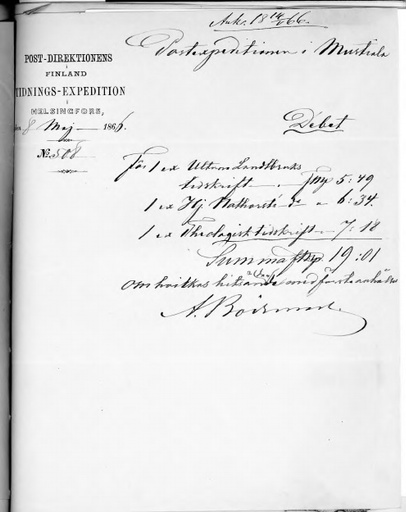 Ank. 18 14/5 66.
Postexpeditionen i Mustiala
POST-DIREKTIONENS
i
FINLAND
TIDNINGS-EXPEDITION
i
HELSINGFORS,
den 8 Maj 1866.
No 508
Debet
För 1 ex Landtbruks
tidskrift 5:49
1 ex Hj Nathorst's do " 6:34
1 ex Theologisk tidskrift 7:18
Summa 19:01
om hvilkas med första
A.